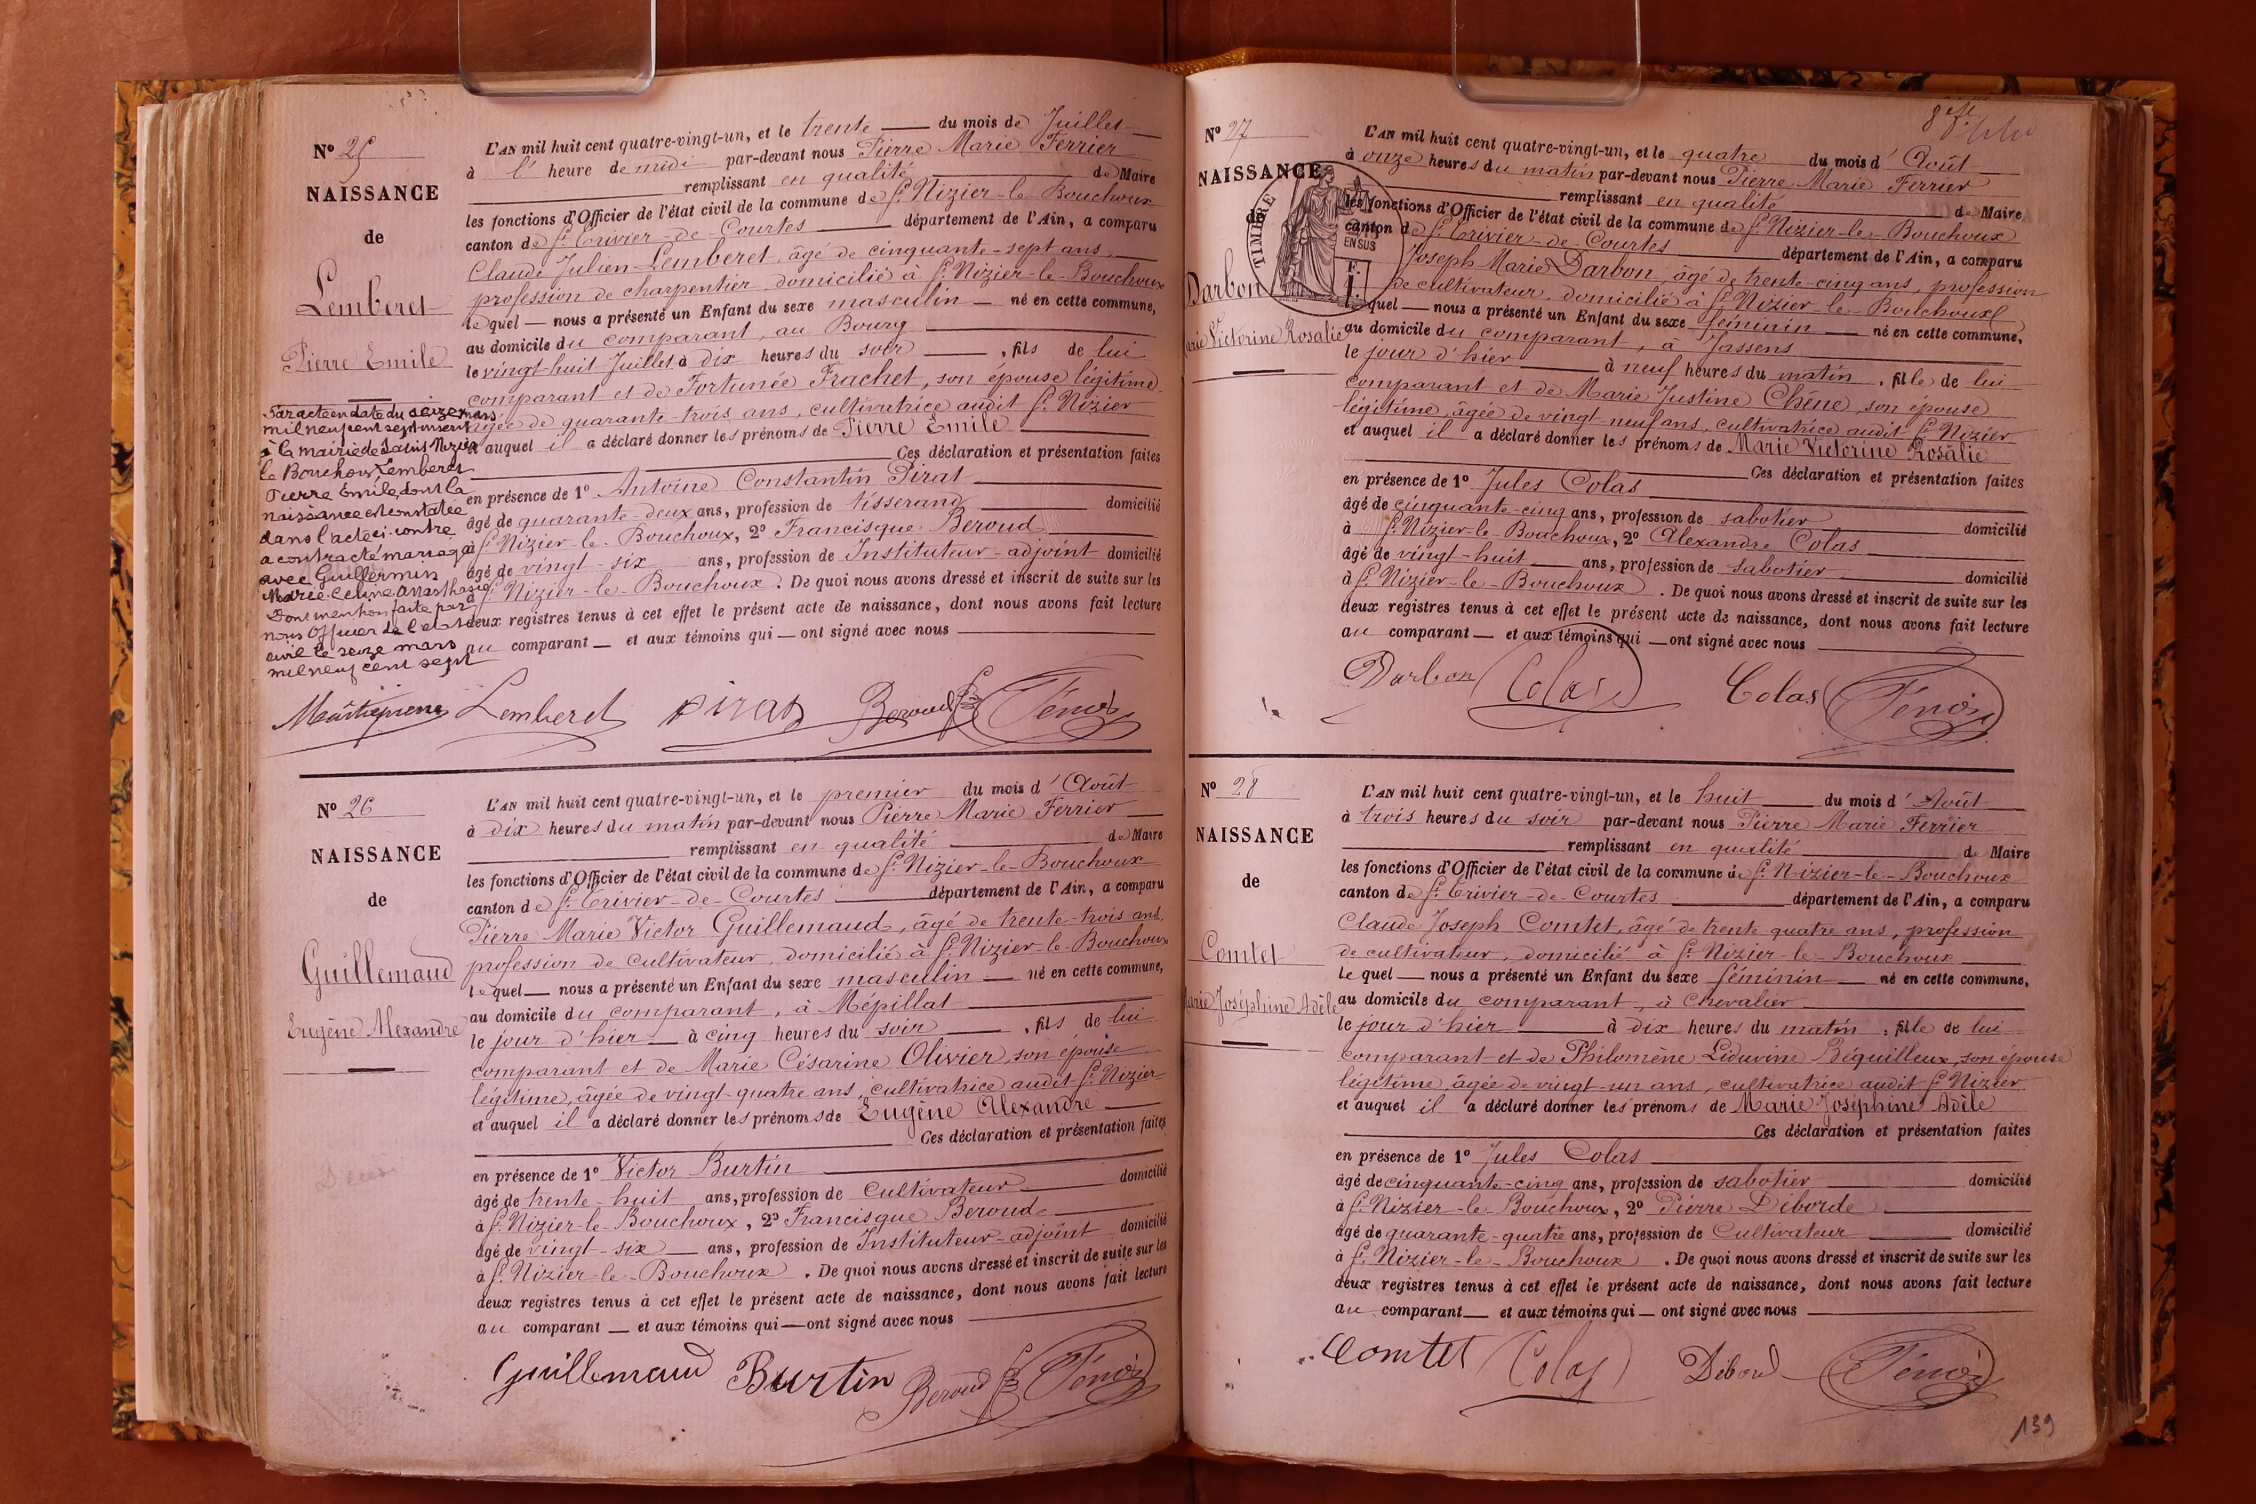 N° 25
NAISSANCE
de
Lemberet
Pierre Emile
Par acte en date du seize mars
mil neuf cent sept inscrit
à la mairie de Saint Nizier
le Bouchoux, Lemberet
Pierre Emile, dont la
naissance est constatée
dans l'acte ci-contre
a contracté mariage
avec Guillermin
Marie Céline Anasthasie
Dont mention faite par
nous Officier de l'état
civil le seize mars
mil neuf cent sept
L'AN mil huit cent quatre-vingt-un, et le trente du mois de Juillet
à l' heure de midi par-devant nous Pierre Marie Ferrier
remplissant en qualité de Maire
les fonctions d'Officier de l'état civil de la commune de St Nizier-le-Bouchoux
canton de St Trivier-de-Courtes département de l'Ain, a comparu
Claude Julien Lemberet, âgé de cinquante-sept ans,
profession de charpentier, domicilié à St Nizier-le-Bouchoux
lequel nous a présenté un Enfant du sexe masculin né en cette commune,
au domicile du comparant, au Bourg
le vingt-huit Juillet à dix heures du soir, fils de lui
comparant et de Fortunée Frachet, son épouse légitime,
âgée de quarante-trois ans, cultivatrice audit St Nizier
et auquel il a déclaré donner les prénoms de Pierre Emile
Ces déclaration et présentation faites
en présence de 1° Antoine Constantin Pirat
âgé de quarante-deux ans, profession de tisserand domicilié
à St Nizier-le-Bouchoux, 2° Francisque Beroud
âgé de vingt-six ans, profession de Instituteur-adjoint domicilié
à St Nizier-le-Bouchoux. De quoi nous avons dressé et inscrit de suite sur les
deux registres tenus à cet effet le présent acte de naissance, dont nous avons fait lecture
au comparant et aux témoins qui ont signé avec nous
Lemberet Pirat Beroud
N° 26
NAISSANCE
de
Guillemaud
Eugène Alexandre
L'AN mil huit cent quatre-vingt-un, et le premier du mois d'Août
à dix heures du matin par-devant nous Pierre Marie Ferrier
remplissant en qualité de Maire
les fonctions d'Officier de l'état civil de la commune de St Nizier-le-Bouchoux
canton de St Trivier-de-Courtes département de l'Ain, a comparu
Pierre Marie Victor Guillemaud, âgé de trente-trois ans,
profession de cultivateur, domicilié à St Nizier-le-Bouchoux
lequel nous a présenté un Enfant du sexe masculin né en cette commune,
au domicile du comparant, à Mépillat
le jour d'hier à cinq heures du soir, fils de lui
comparant et de Marie Césarine Olivier, son épouse
légitime, âgée de vingt-quatre ans, cultivatrice audit St Nizier
et auquel il a déclaré donner les prénoms de Eugène Alexandre
Ces déclaration et présentation faites
en présence de 1° Victor Burtin
âgé de trente-huit ans, profession de Cultivateur domicilié
à St Nizier-le-Bouchoux, 2° Francisque Beroud
âgé de vingt-six ans, profession de Instituteur-adjoint domicilié
à St Nizier-le-Bouchoux. De quoi nous avons dressé et inscrit de suite sur les
deux registres tenus à cet effet le présent acte de naissance, dont nous avons fait lecture
au comparant et aux témoins qui ont signé avec nous
Guillemaud Burtin Beroud
N° 27
NAISSANCE
de
Darbon
Marie Victorine Rosalie
TIMBRE
EN SUS
L'AN mil huit cent quatre-vingt-un, et le quatre du mois d'Août
à onze heures du matin par-devant nous Pierre Marie Ferrier
remplissant en qualité de Maire
les fonctions d'Officier de l'état civil de la commune de St Nizier-le-Bouchoux
canton de St Trivier-de-Courtes département de l'Ain, a comparu
Joseph Marie Darbon, âgé de trente-cinq ans, profession
de cultivateur, domicilié à St Nizier-le-Bouchoux
lequel nous a présenté un Enfant du sexe féminin né en cette commune,
au domicile du comparant, à Jassens
le jour d'hier à neuf heures du matin, fille de lui
comparant et de Marie Justine Chêne, son épouse
légitime, âgée de vingt-neuf ans, cultivatrice audit St Nizier
et auquel il a déclaré donner les prénoms de Marie Victorine Rosalie
Ces déclaration et présentation faites
en présence de 1° Jules Colas
âgé de cinquante-cinq ans, profession de sabotier domicilié
à St Nizier-le-Bouchoux, 2° Alexandre Colas
âgé de vingt-huit ans, profession de sabotier domicilié
à St Nizier-le-Bouchoux. De quoi nous avons dressé et inscrit de suite sur les
deux registres tenus à cet effet le présent acte de naissance, dont nous avons fait lecture
au comparant et aux témoins qui ont signé avec nous
Darbon Colas Colas
N° 28
NAISSANCE
de
Comtet
Marie Joséphine Adèle
L'AN mil huit cent quatre-vingt-un, et le huit du mois d'Août
à trois heures du soir par-devant nous Pierre Marie Ferrier
remplissant en qualité de Maire
les fonctions d'Officier de l'état civil de la commune de St Nizier-le-Bouchoux
canton de St Trivier-de-Courtes département de l'Ain, a comparu
Claude Joseph Comtet, âgé de trente quatre ans, profession
de cultivateur, domicilié à St Nizier-le-Bouchoux
lequel nous a présenté un Enfant du sexe féminin né en cette commune,
au domicile du comparant, à Chevalier
le jour d'hier à dix heures du matin, fille de lui
comparant et de Philomène Liduvine Béquilleux, son épouse
légitime, âgée de vingt-un ans, cultivatrice audit St Nizier
et auquel il a déclaré donner les prénoms de Marie Joséphine Adèle
Ces déclaration et présentation faites
en présence de 1° Jules Colas
âgé de cinquante-cinq ans, profession de sabotier domicilié
à St Nizier-le-Bouchoux, 2° Pierre Déborde
âgé de quarante-quatre ans, profession de Cultivateur domicilié
à St Nizier-le-Bouchoux. De quoi nous avons dressé et inscrit de suite sur les
deux registres tenus à cet effet le présent acte de naissance, dont nous avons fait lecture
au comparant et aux témoins qui ont signé avec nous
Comtet Colas Débord
139